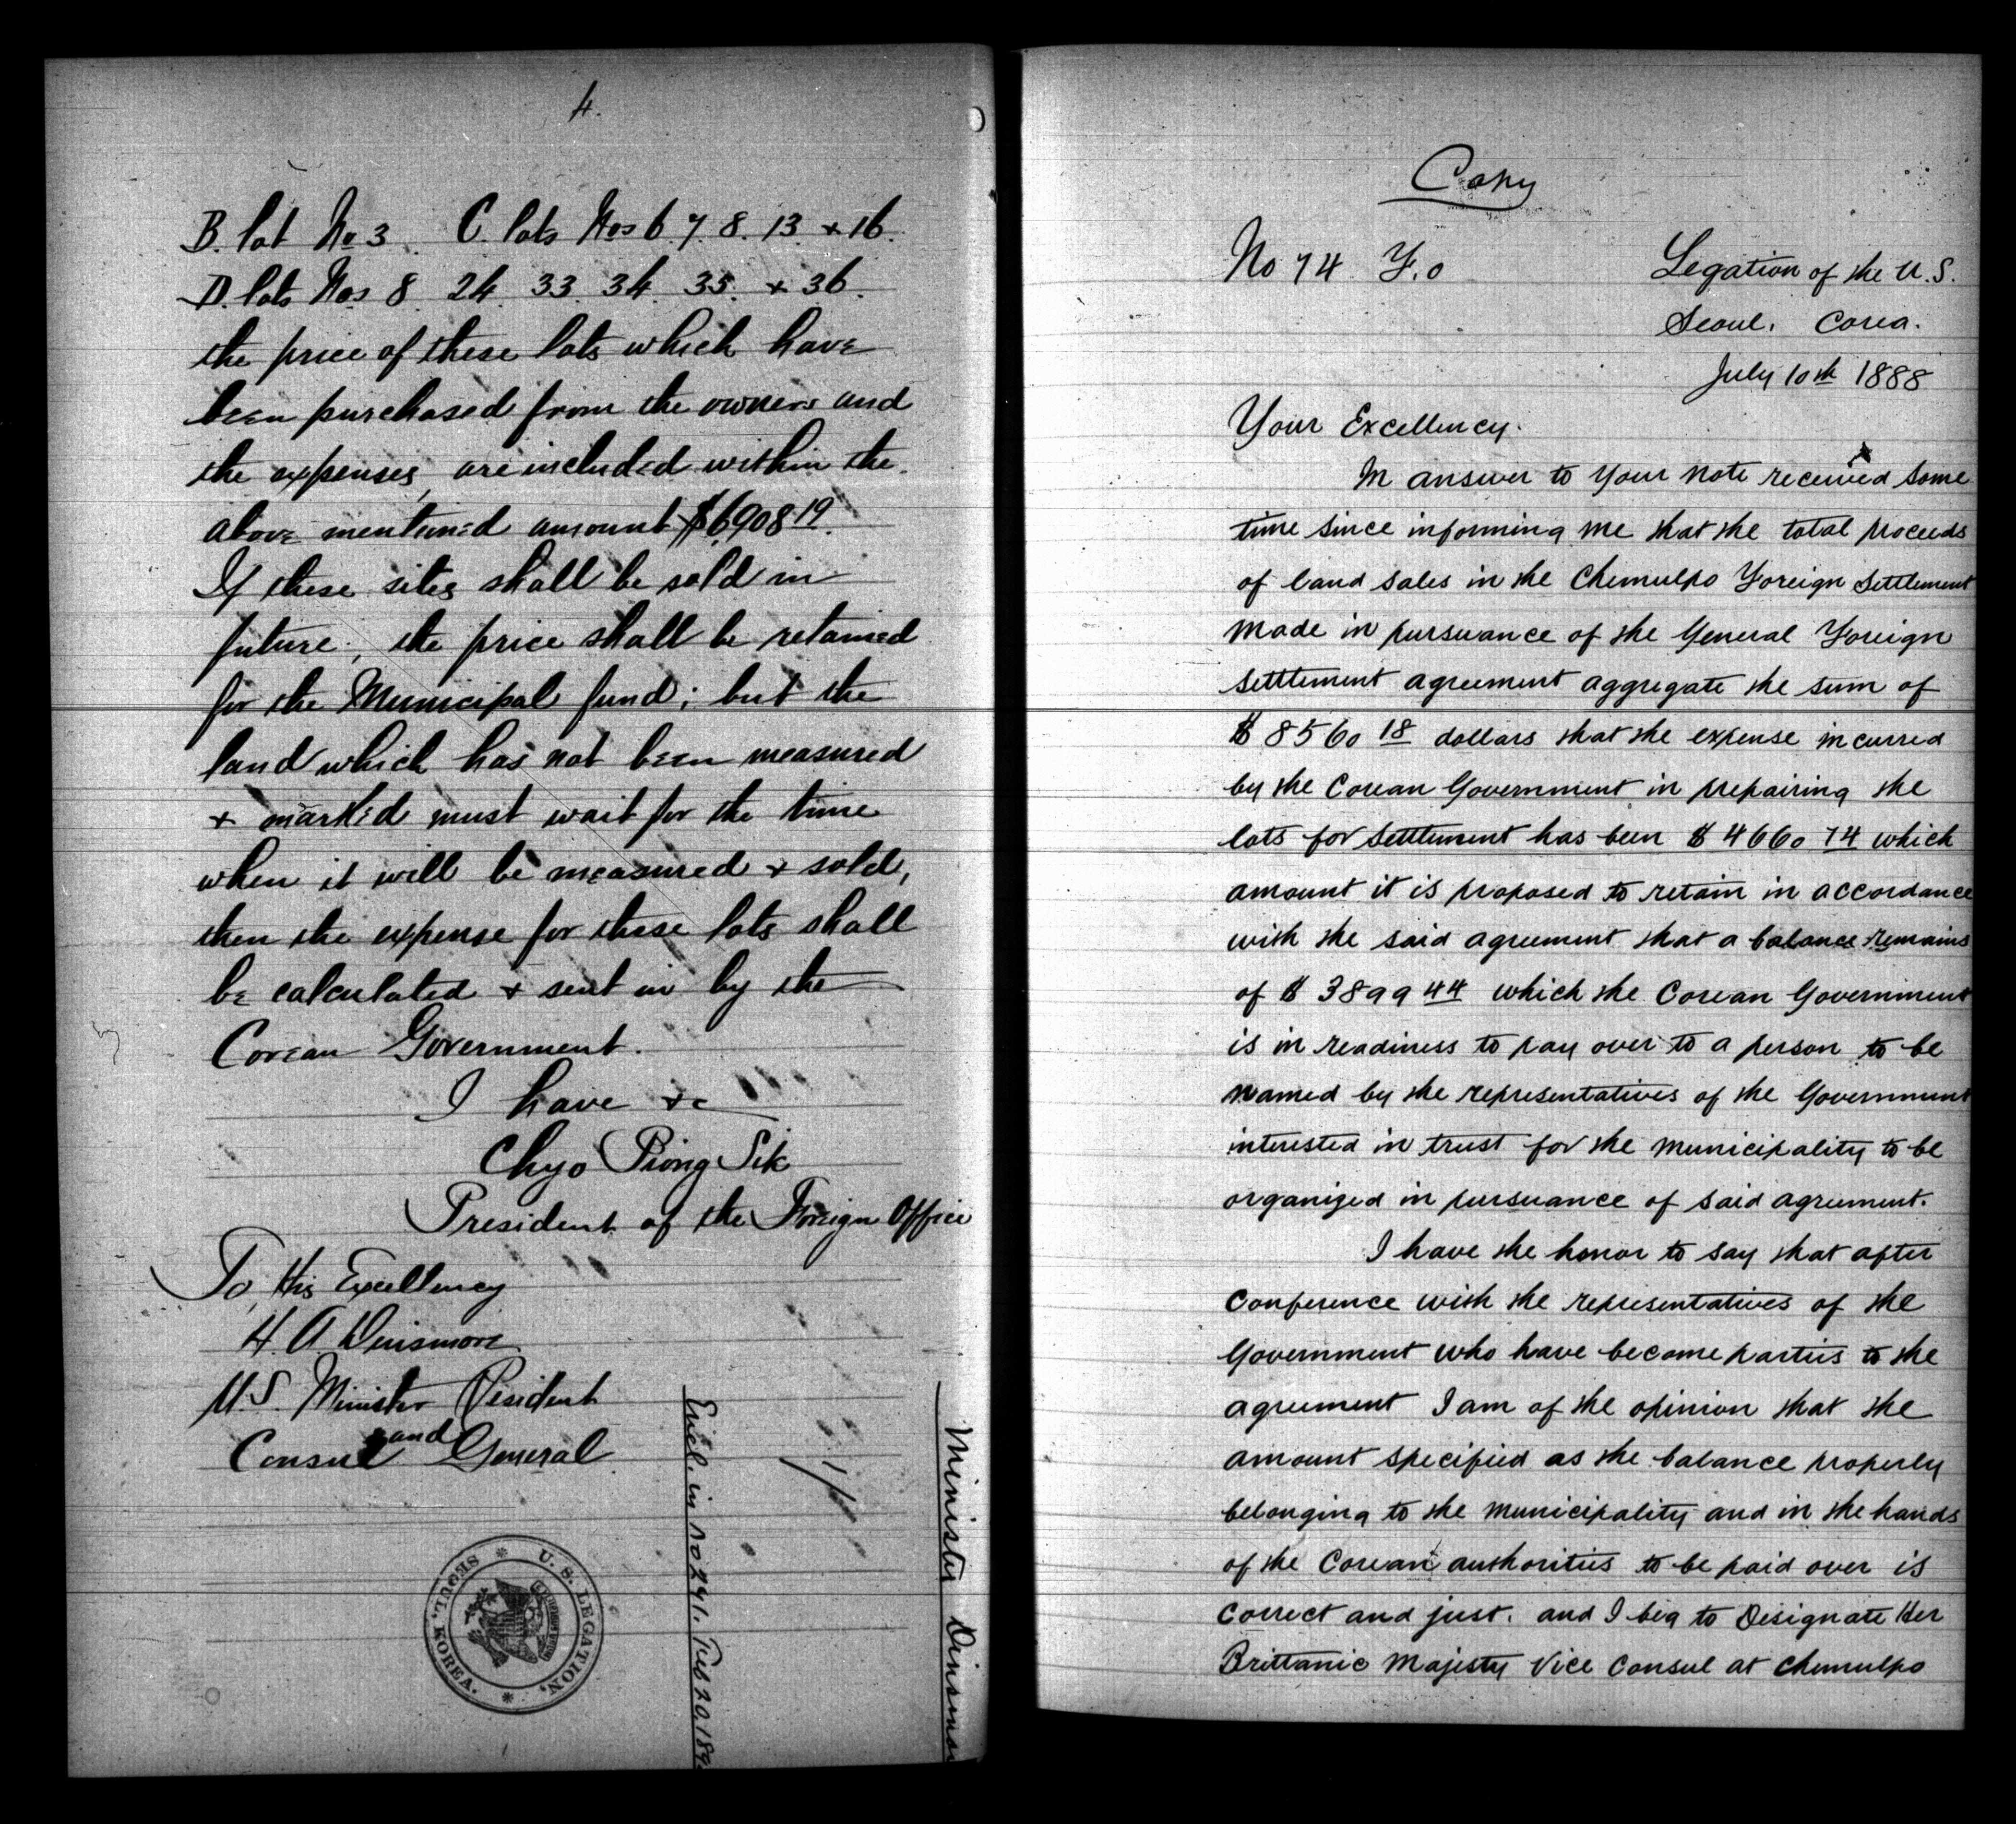 4.
B. lot No 3. C. lots Nos 6. 7. 8. 13. + 16.
D. lots Nos 8. 24. 33. 34. 35. + 36.
the price of these lots which have
been purchased from the owners and
the expenses, are included within the
above mentioned amount $6,908 19.
If these sites shall be sold in
future, the price shall be retained
for the Municipal fund; but the
land which has not been measured
+ marked must wait for the time
when it will be measured + sold,
then the expense for those lots shall
be calculated + sent in by the
Corean Government.
I have &c
Chyo Piong Sik
President of the Foreign Office
To, His Excellency
H. A Dinsmore
U.S. Minister Resident
and
Consul General
U. S. LEGATION,
SEOUL, KOREA.
Encl. in no 241. Feb 20. 189
Minister Dinsmore
Copy
No 74 F.O
Legation of the U.S.
Seoul. Corea.
July 10th 1888
Your Excellency.
In answer to your note received some
time since informing me that the total proceeds
of land sales in the Chemulpo Foreign Settlement
made in pursuance of the General Foreign
settlement agreement aggregate the sum of
$ 8560 18 dollars that the expense incurred
by the Corean Government in prepairing the
lots for settlement has been $ 4660 74 which
amount it is proposed to retain in accordance
with the said agreement that a balance remains
of $ 3899 44 which the Corean Government
is in readiness to pay over to a person to be
named by the representatives of the Government
interested in trust for the municipality to be
organized in pursuance of said agreement.
I have the honor to say that after
conference with the representatives of the
Government who have become parties to the
agreement I am of the opinion that the
amount specified as the balance properly
belonging to the municipality and in the hands
of the Corean authorities to be paid over is
correct and just. and I beg to designate Her
Brittanic Majesty Vice Consul at Chemulpo